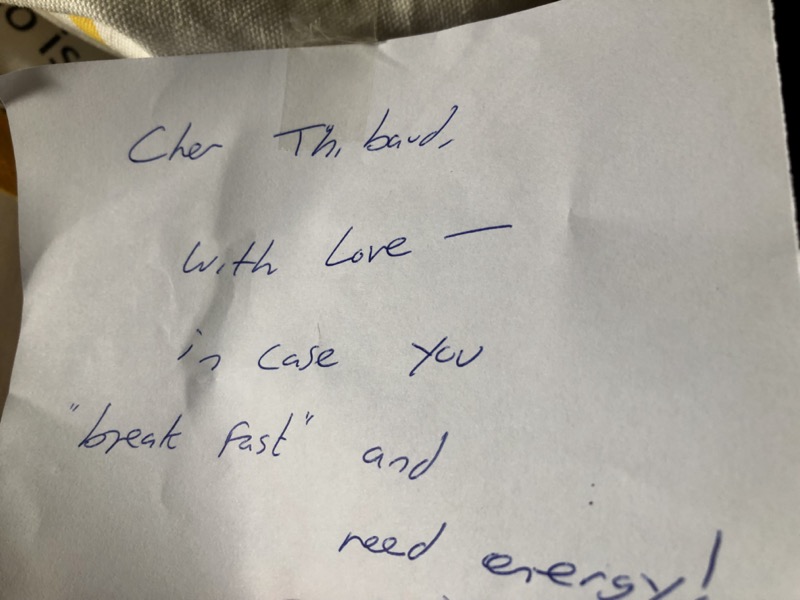 o is
Cher Thibaud,
With Love —
in case you
"break fast" and
need energy!